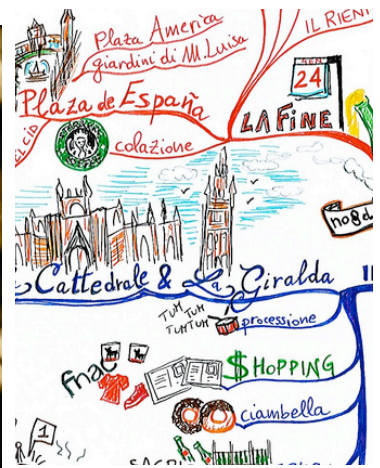 Plaza America
giardini di M. Luisa
IL RIEN
24
LA FINE
Plaza de España
EL CID
colazione
no8d
Cattedrale & La Giralda
TUM TUM
TUMTUM
processione
fnac
$HOPPING
ciambella
1